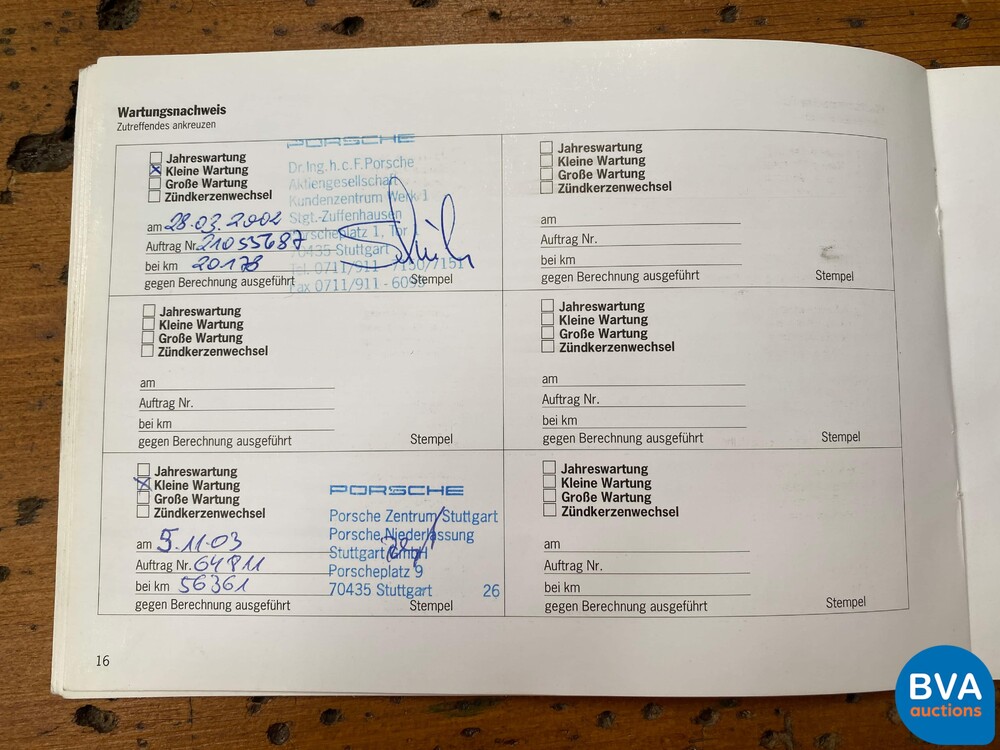 Wartungsnachweis
Zutreffendes ankreuzen
Jahreswartung
Kleine Wartung
Große Wartung
Zündkerzenwechsel
am 28.03.2002
Auftrag Nr. 21055687
bei km 20178
gegen Berechnung ausgeführt
Stempel
PORSCHE
Dr.Ing.h.c.F.Porsche
Aktiengesellschaft
Kundenzentrum Werk 1
Stgt.-Zuffenhausen
Porscheplatz 1, Tor 1
70435 Stuttgart
Tel. 0711/911 - 7150/7151
Fax 0711/911 - 6095
Jahreswartung
Kleine Wartung
Große Wartung
Zündkerzenwechsel
am
Auftrag Nr.
bei km
gegen Berechnung ausgeführt
Stempel
Jahreswartung
Kleine Wartung
Große Wartung
Zündkerzenwechsel
am
Auftrag Nr.
bei km
gegen Berechnung ausgeführt
Stempel
Jahreswartung
Kleine Wartung
Große Wartung
Zündkerzenwechsel
am
Auftrag Nr.
bei km
gegen Berechnung ausgeführt
Stempel
Jahreswartung
Kleine Wartung
Große Wartung
Zündkerzenwechsel
am 5.11.03
Auftrag Nr. 64811
bei km 56361
gegen Berechnung ausgeführt
Stempel
PORSCHE
Porsche Zentrum Stuttgart
Porsche Niederlassung
Stuttgart GmbH
Porscheplatz 9
70435 Stuttgart 26
Jahreswartung
Kleine Wartung
Große Wartung
Zündkerzenwechsel
am
Auftrag Nr.
bei km
gegen Berechnung ausgeführt
Stempel
16
BVA
auctions